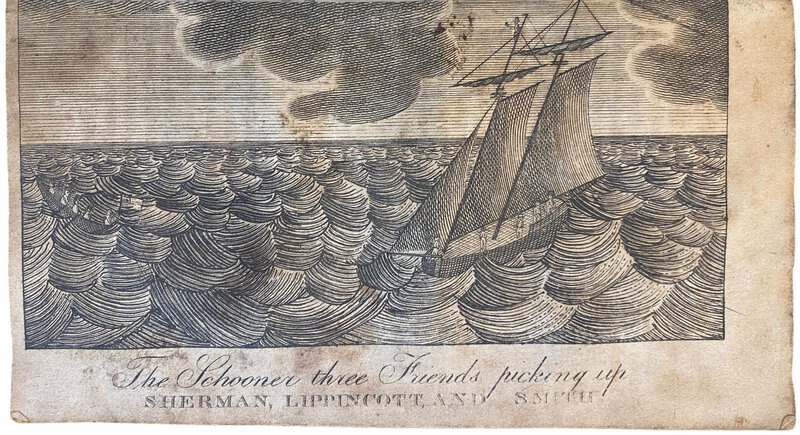 The Schooner three Friends picking up
SHERMAN, LIPPINCOTT, AND SMITH